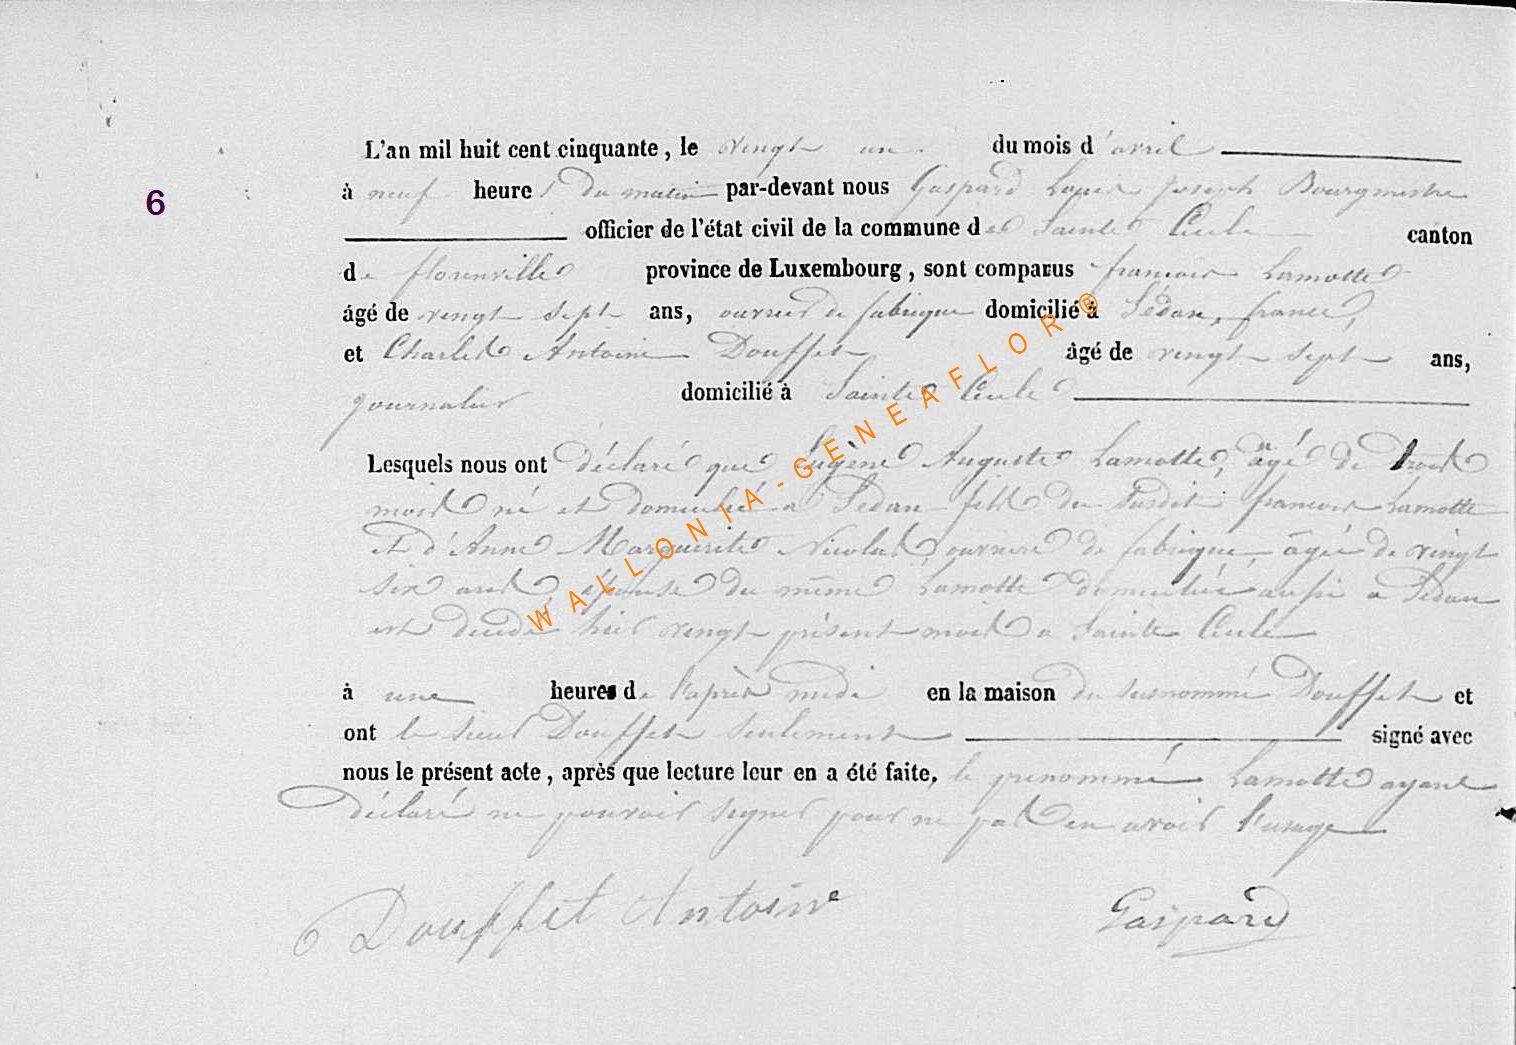 L'an mil huit cent cinquante, le vingt un du mois d'avril
6
à neuf heures du matin par-devant nous Gaspard Louis Joseph Bourgmestre
officier de l'état civil de la commune de Sainte Cecile canton
de florenville province de Luxembourg, sont comparus francois Lamotte
âgé de vingt sept ans, ouvrier de fabrique domicilié à Sédan, france,
et Charles Antoine Douffet âgé de vingt sept ans,
journalier domicilié à Sainte Cecile
Lesquels nous ont déclaré que Eugène Auguste Lamotte, âgé de trois
mois né et domicilié a Sedan fils du susdit francois Lamotte
et d'Anne Marguerite Nicolas, ouvriere de fabrique âgée de vingt
six ans, épouse du même Lamotte domiciliée aussi a Sedan
est décédé hier vingt présent mois a Sainte Cecile
à une heures de l'après midi en la maison du susnommé Douffet et
ont le sieur Douffet seulement signé avec
nous le présent acte, après que lecture leur en a été faite, le prénommé Lamotte ayant
déclaré ne pouvoir signer pour ne pas en avoir l'usage
Douffet Antoine Gaspard
WALLONIA-GENEAFLOR®